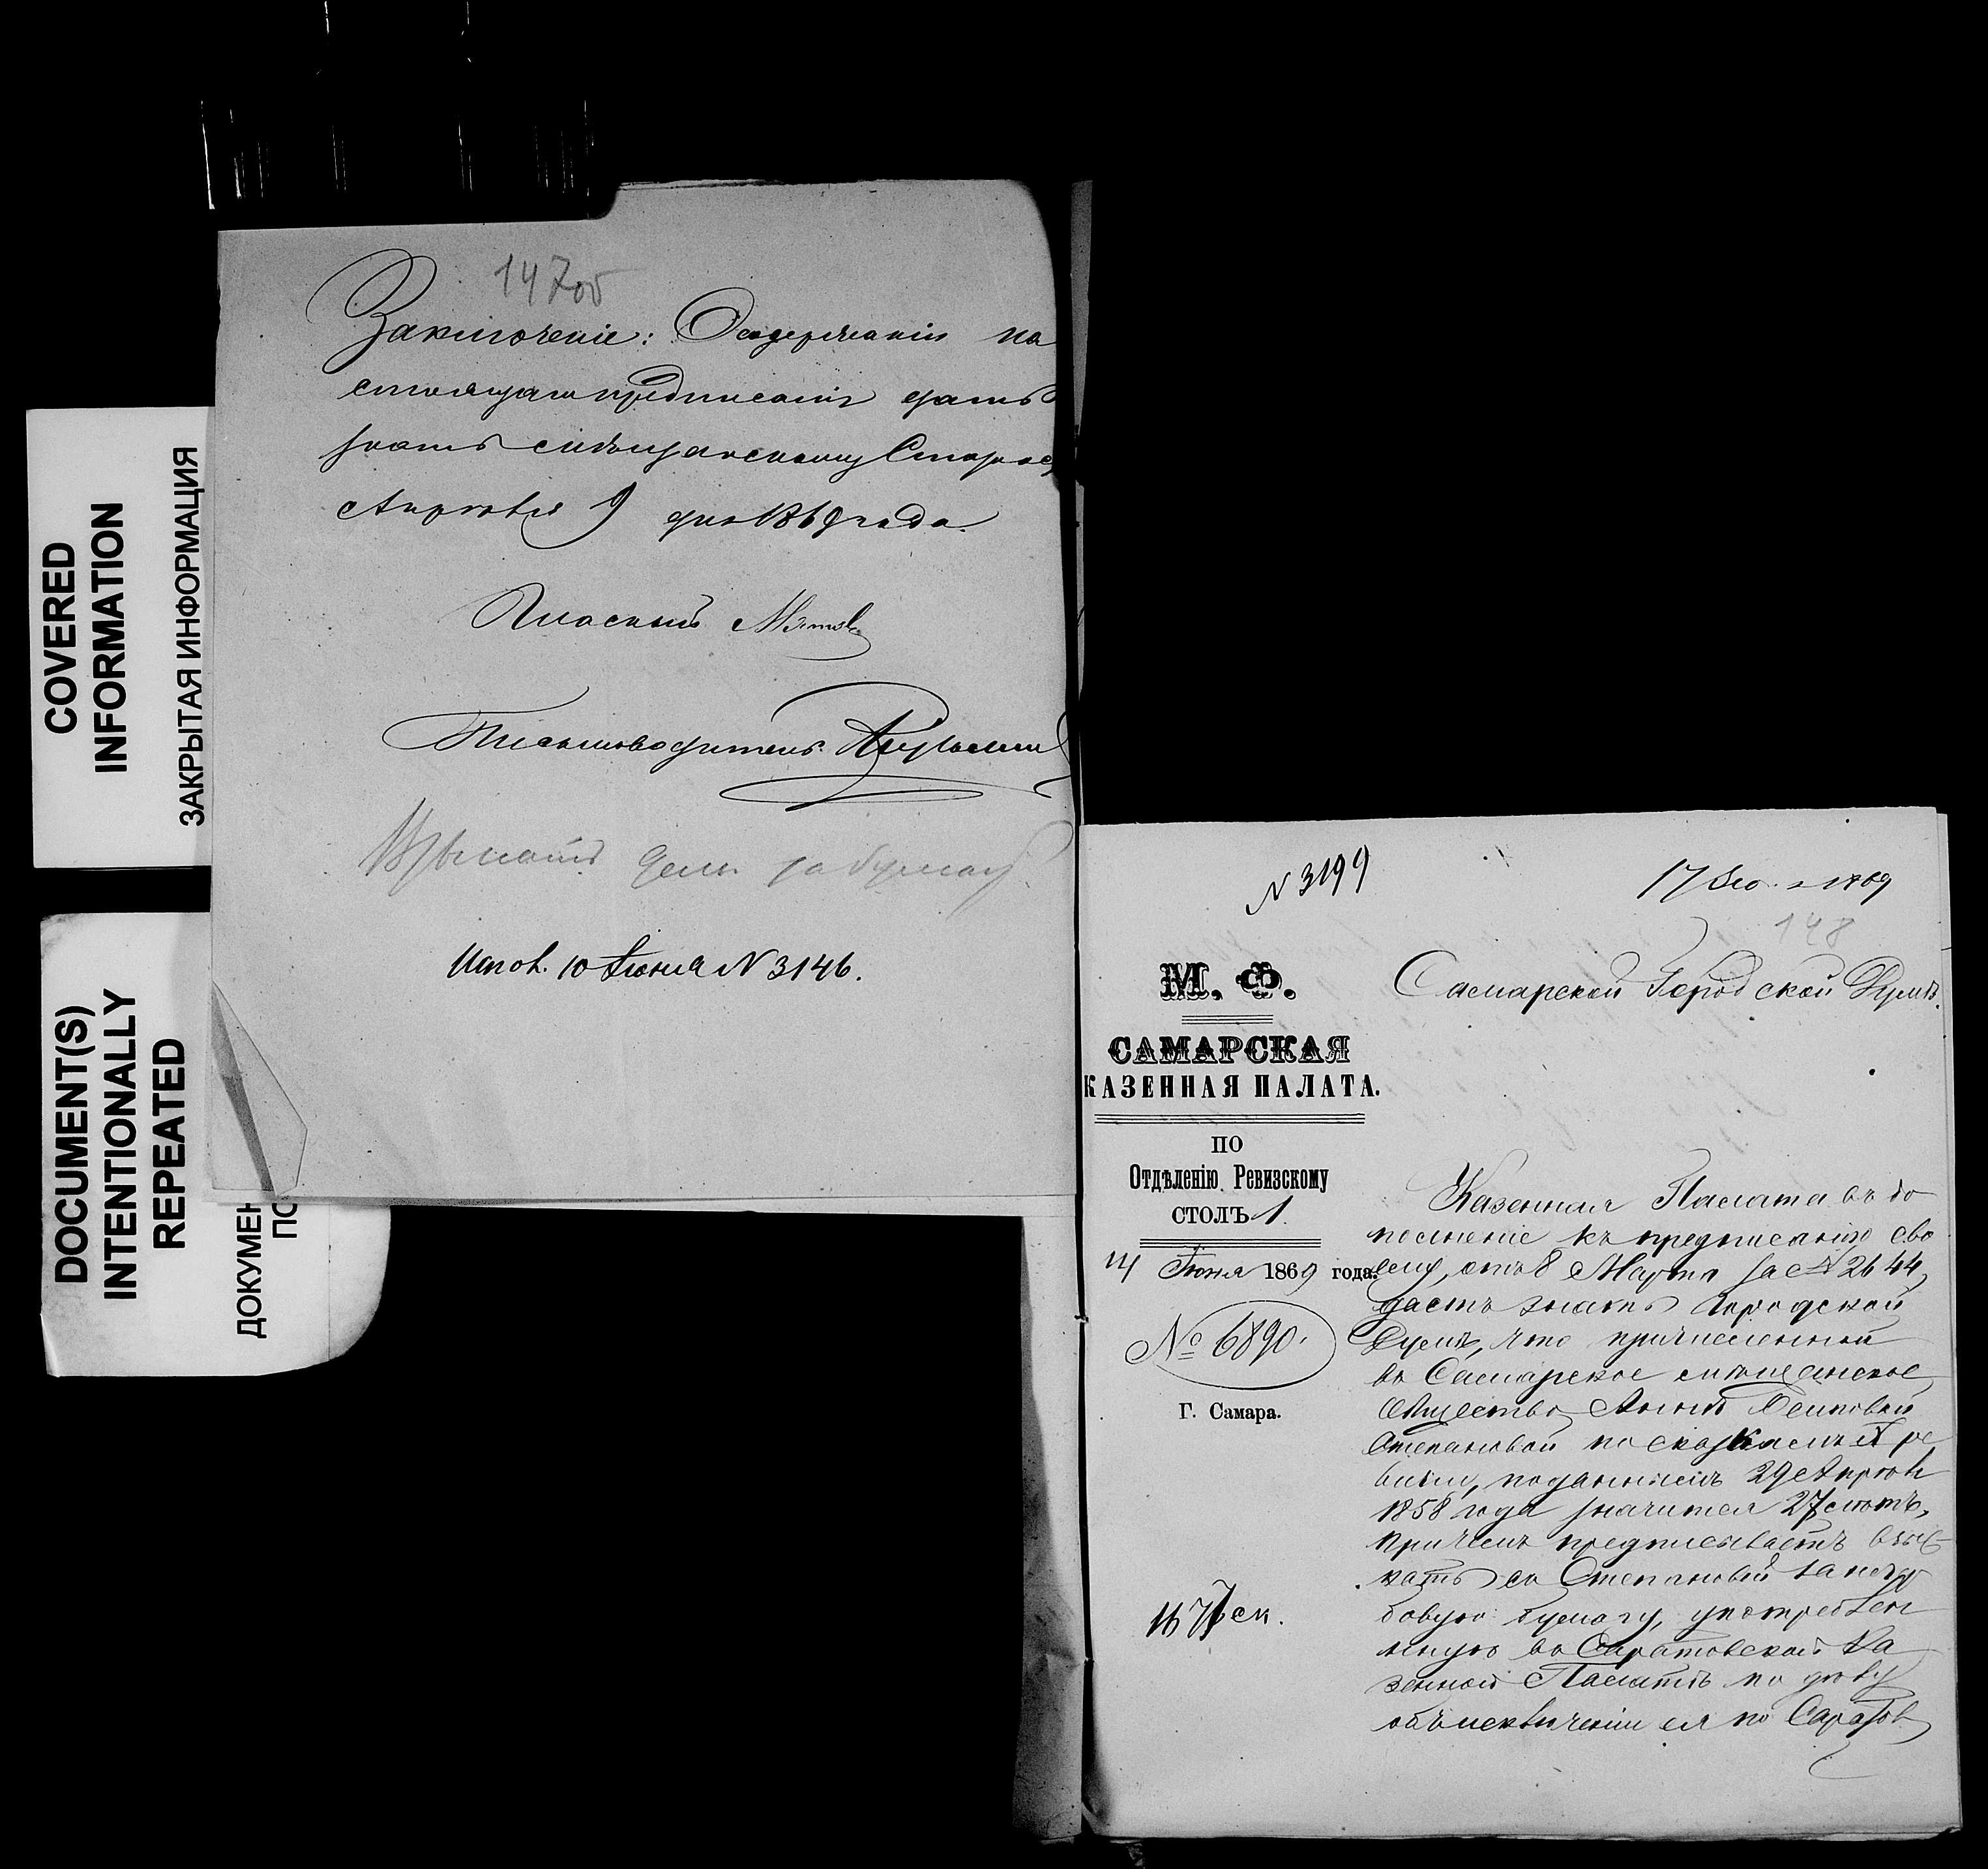 COVERED
INFORMATION
ЗАКРЫТАЯ ИНФОРМАЦИЯ
DOCUMENT(S)
INTENTIONALLY
REPEATED
ДОКУМЕН
ПО
147об
Заключеніе: О содержаніи на
стоящаго предписанія дать
знать мѣщанскому Старос
Апрѣля 9 дня 1869 года.
Гласный
Письмоводитель
Взыскать день за бумагу
Испол. 10 Іюня N 3146.
N 3199
17 Іюня 1869
148
М. Ф.
САМАРСКАЯ
КАЗЕННАЯ ПАЛАТА.
ПО
Отдѣленію Ревизскому
СТОЛЪ 1.
14 Іюня 1869 года.
№ 6890.
Г. Самара.
Самарской Городской Думѣ.
Казенная Палата въ до
полненіе къ предписанію сво
ему, отъ 8 Марта за № 2644,
даетъ знать Городской
Думѣ, что причисленной
въ Самарское мѣщанское
общество Аннѣ Осиповой
Степановой по сказкамъ X ре
визіи, поданнымъ 29 Апрѣля
1858 года значится 27 лѣтъ,
причемъ предписываетъ взыс
кать съ Степановой за герб
бовую бумагу, употреблен
ную въ Саратовской Ка
зенной Палатѣ по дѣлу
объ исключеніи ея по Саратов